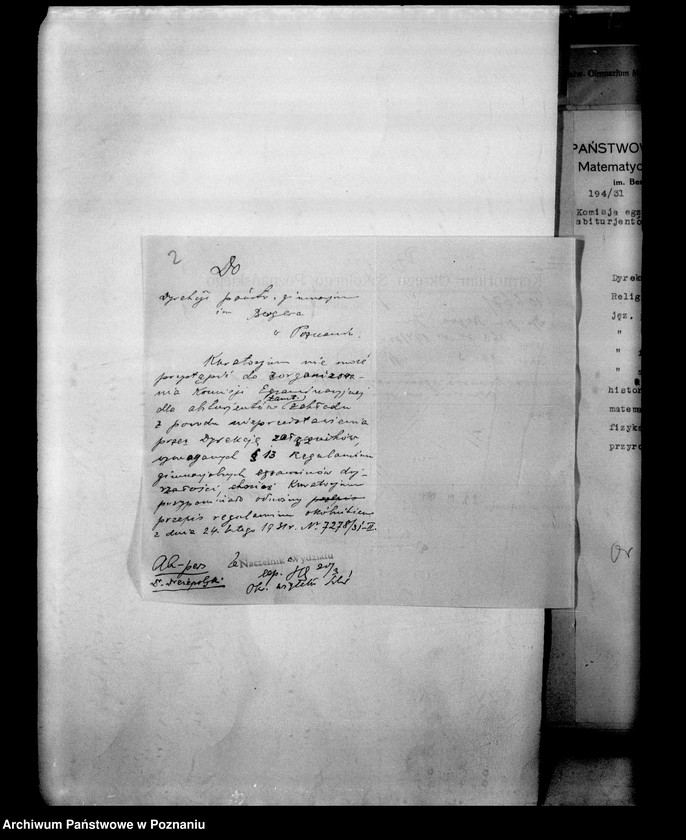 2
Do
Dyrekcji państw. gimnazjum
im Bergera
w Poznaniu.
Kuratorjum nie może
przystąpić do zorganizowa-
nia Komisji Egzaminacyjnej
dla abiturjentów tamt. Zakładu
z powodu nieprzedstawienia
przez Dyrekcję załączników,
wymaganych § 13 Regulaminu
gimnazjalnych egzaminów doj-
rzałości, chociaż Kuratorjum
przypomniało odnośny
przepis regulaminu okólnikiem
z dnia 24. lutego 1931r. Nr. 7278/31-II.
Naczelnik Wydziału
PAŃSTWOW
Matematyc
im. Ber
194/31
Komisja egz
abiturjentó
Dyrek
Relig
jęz.
"
"
"
histor
matema
fizyka
przyro
Archiwum Państwowe w Poznaniu